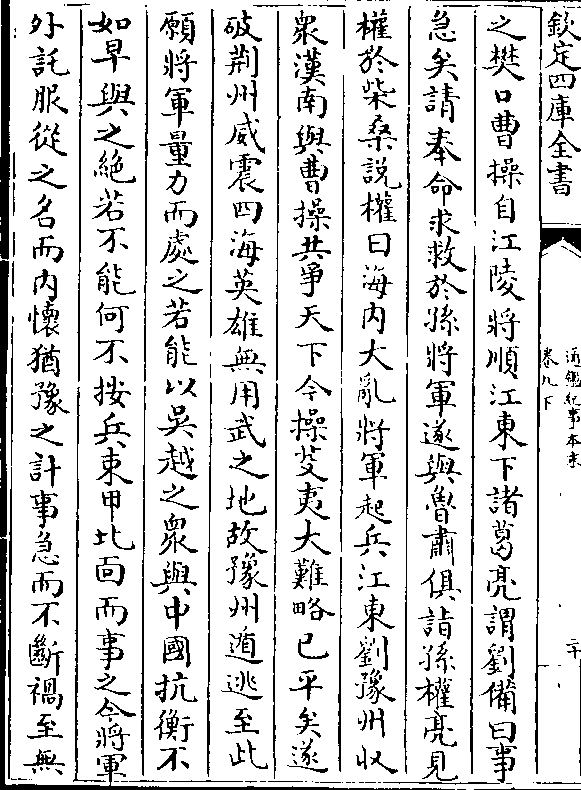 欽定四庫全書
通鑑紀事本末
卷九下
二十
之樊口曹操自江陵將順江東下諸葛亮謂劉備曰事
急矣請奉命求救於孫將軍遂與魯肅俱詣孫權亮見
權於柴桑説權曰海内大亂將軍起兵江東劉豫州收
衆漢南與曹操共爭天下今操芟夷大難略已平矣遂
破荆州威震四海英雄無用武之地故豫州遁逃至此
願將軍量力而處之若能以吳越之衆與中國抗衡不
如早與之絶若不能何不按兵束甲北面而事之今將軍
外託服從之名而内懷猶豫之計事急而不斷禍至無